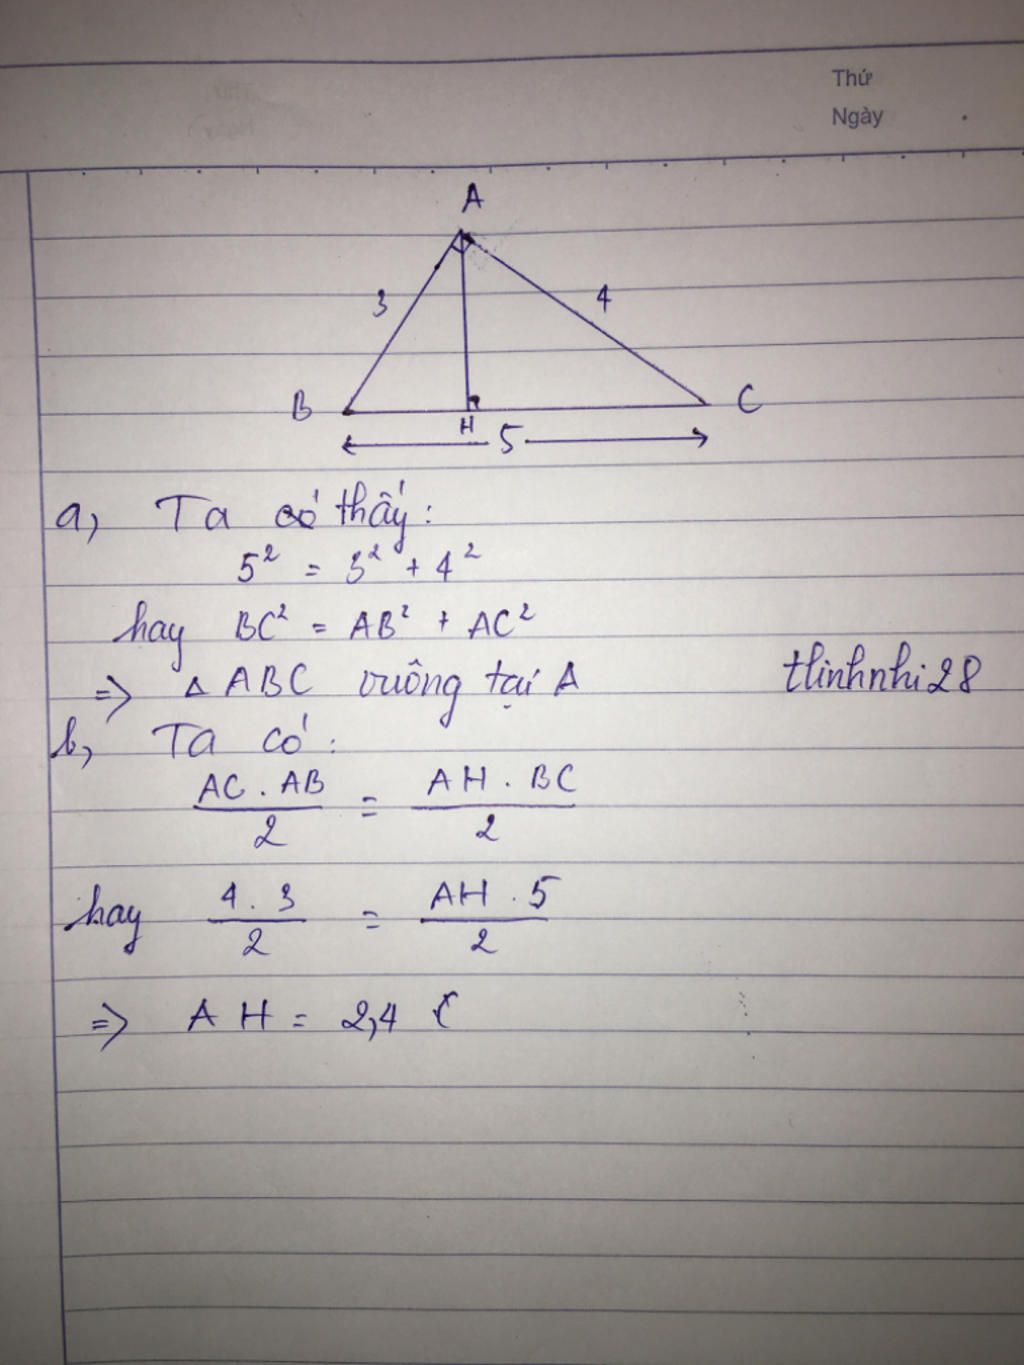 Thứ
Ngày
A
3
4
B
H
C
5
a, Ta có thấy:
5² = 3² + 4²
hay BC² = AB² + AC²
=> △ ABC vuông tại A
tlinhnhi28
b, Ta có:
AC . AB / 2 = AH . BC / 2
hay 4 . 3 / 2 = AH . 5 / 2
=> AH = 2,4